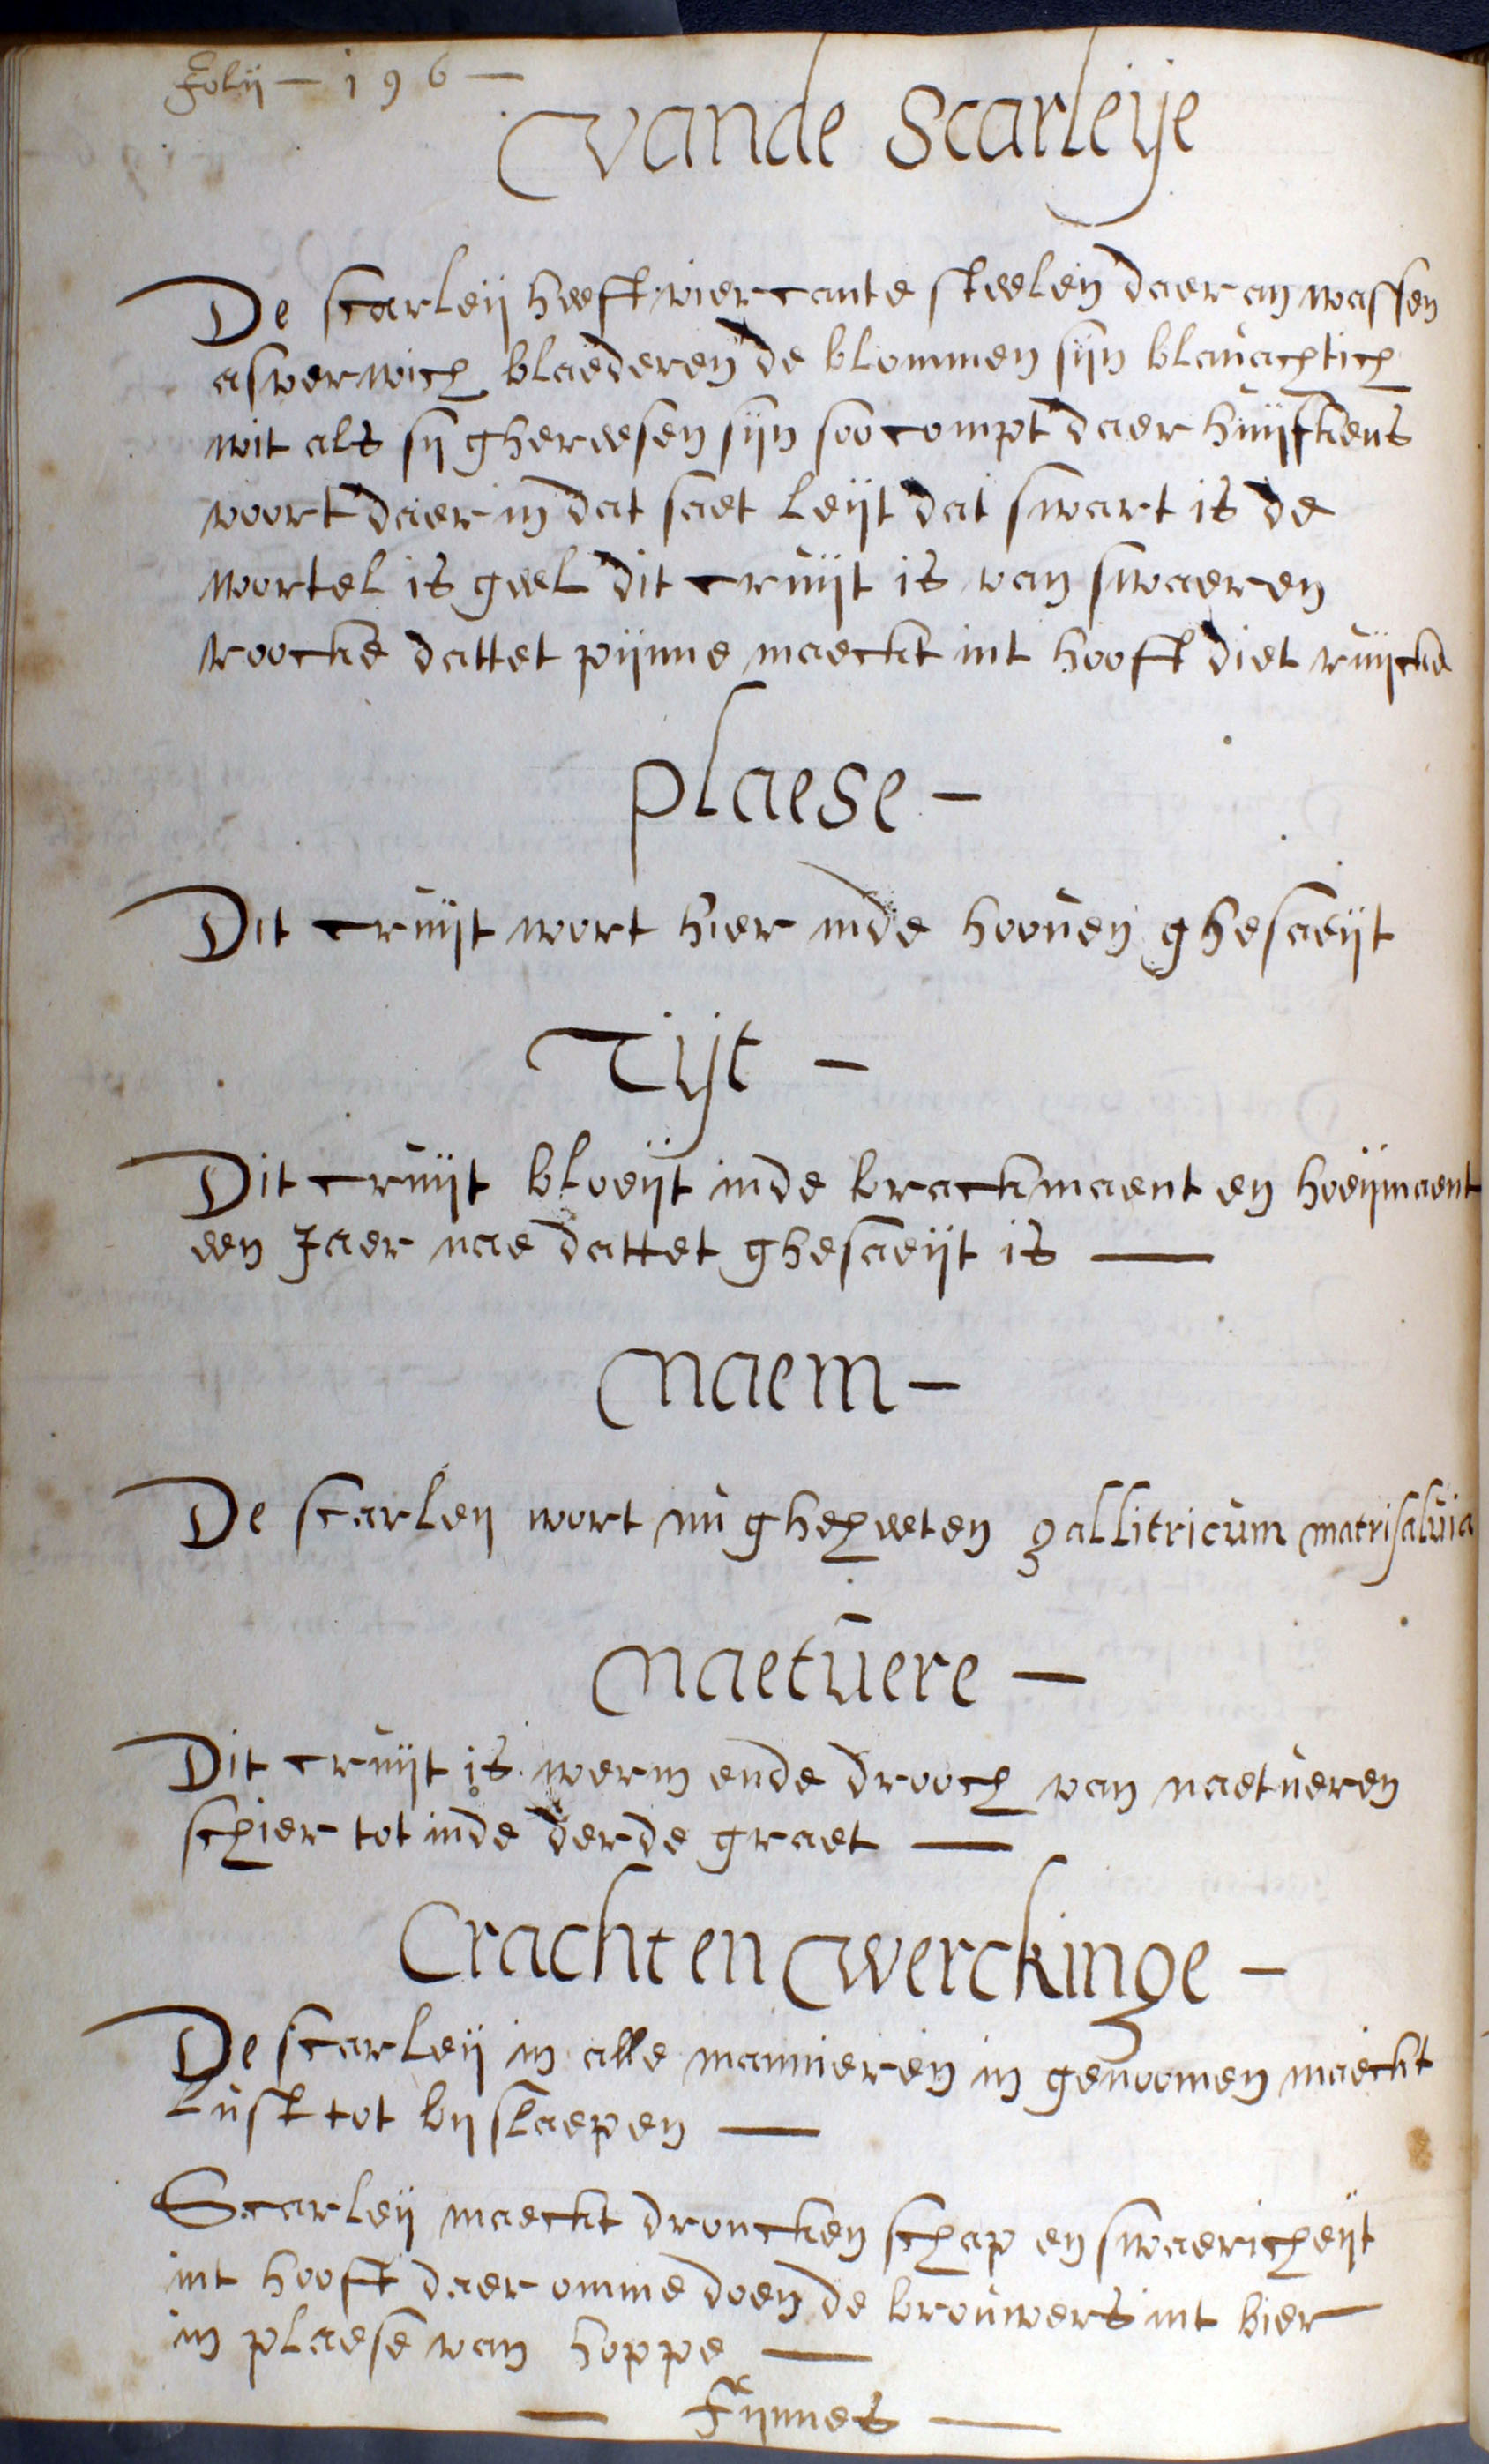 Folij — 196 —
Vande Scarleije
De scarleij heeft viercante steelen daer an wassen
asverwich blaederen de blommen sijn blauachtich
wit als sij gheresen sijn soo compt daer huijskens
voort daer in dat saet leijt dat swart is de
wortel is geel dit cruijt is van swaeren
roocke dattet pijnne maeckt int hooft diet ruijckt
plaese —
Dit cruijt wort hier inde hooven ghesaeijt
Tijt —
Dit cruijt bloeijt inde brackmaent en hoeijmaent
een Jaer nae dattet ghesaeijt is —
Naem —
De scarleij wort nu gheheeten gallitricum matrisalvia
Naetuere —
Dit cruijt is werm ende drooch van naetueren
schier tot inde derde graet —
Cracht en Werckinge —
De scarleij in alle mannieren in genoomen maeckt
lust tot bij slaepen —
Scarleij maeckt droncken schap en swaericheijt
int hooft daer omme doen de brouwers int bier
in plaese van hoppe —
— Fijnnes —